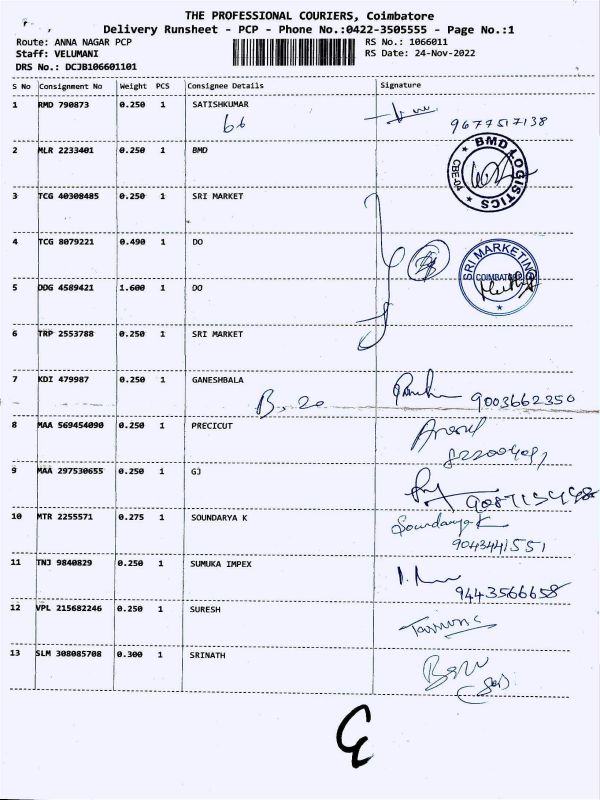 THE PROFESSIONAL COURIERS, Coimbatore
Delivery Runsheet - PCP - Phone No.:0422-3505555 - Page No.:1
Route: ANNA NAGAR PCP RS No.: 1066011
Staff: VELUMANI RS Date: 24-Nov-2022
DRS No.: DCJB106601101
S No Consignment No Weight PCS Consignee Details Signature
1 RMD 790873 0.250 1 SATISHKUMAR
66 9677517138
2 MLR 2233401 0.250 1 BMD
BMD LOGISTICS CBE-04
3 TCG 40308485 0.250 1 SRI MARKET
4 TCG 8079221 0.490 1 DO
SRI MARKETING COIMBATORE
5 DDG 4589421 1.600 1 DO
6 TRP 2553788 0.250 1 SRI MARKET
7 KDI 479987 0.250 1 GANESHBALA
9003662350
8 MAA 569454090 0.250 1 PRECICUT
9 MAA 297530655 0.250 1 GJ
10 MTR 2255571 0.275 1 SOUNDARYA K
Soundarya K
9043441551
11 TNJ 9840829 0.250 1 SUMUKA IMPEX
9443566658
12 VPL 215682246 0.250 1 SURESH
13 SLM 308085708 0.300 1 SRINATH